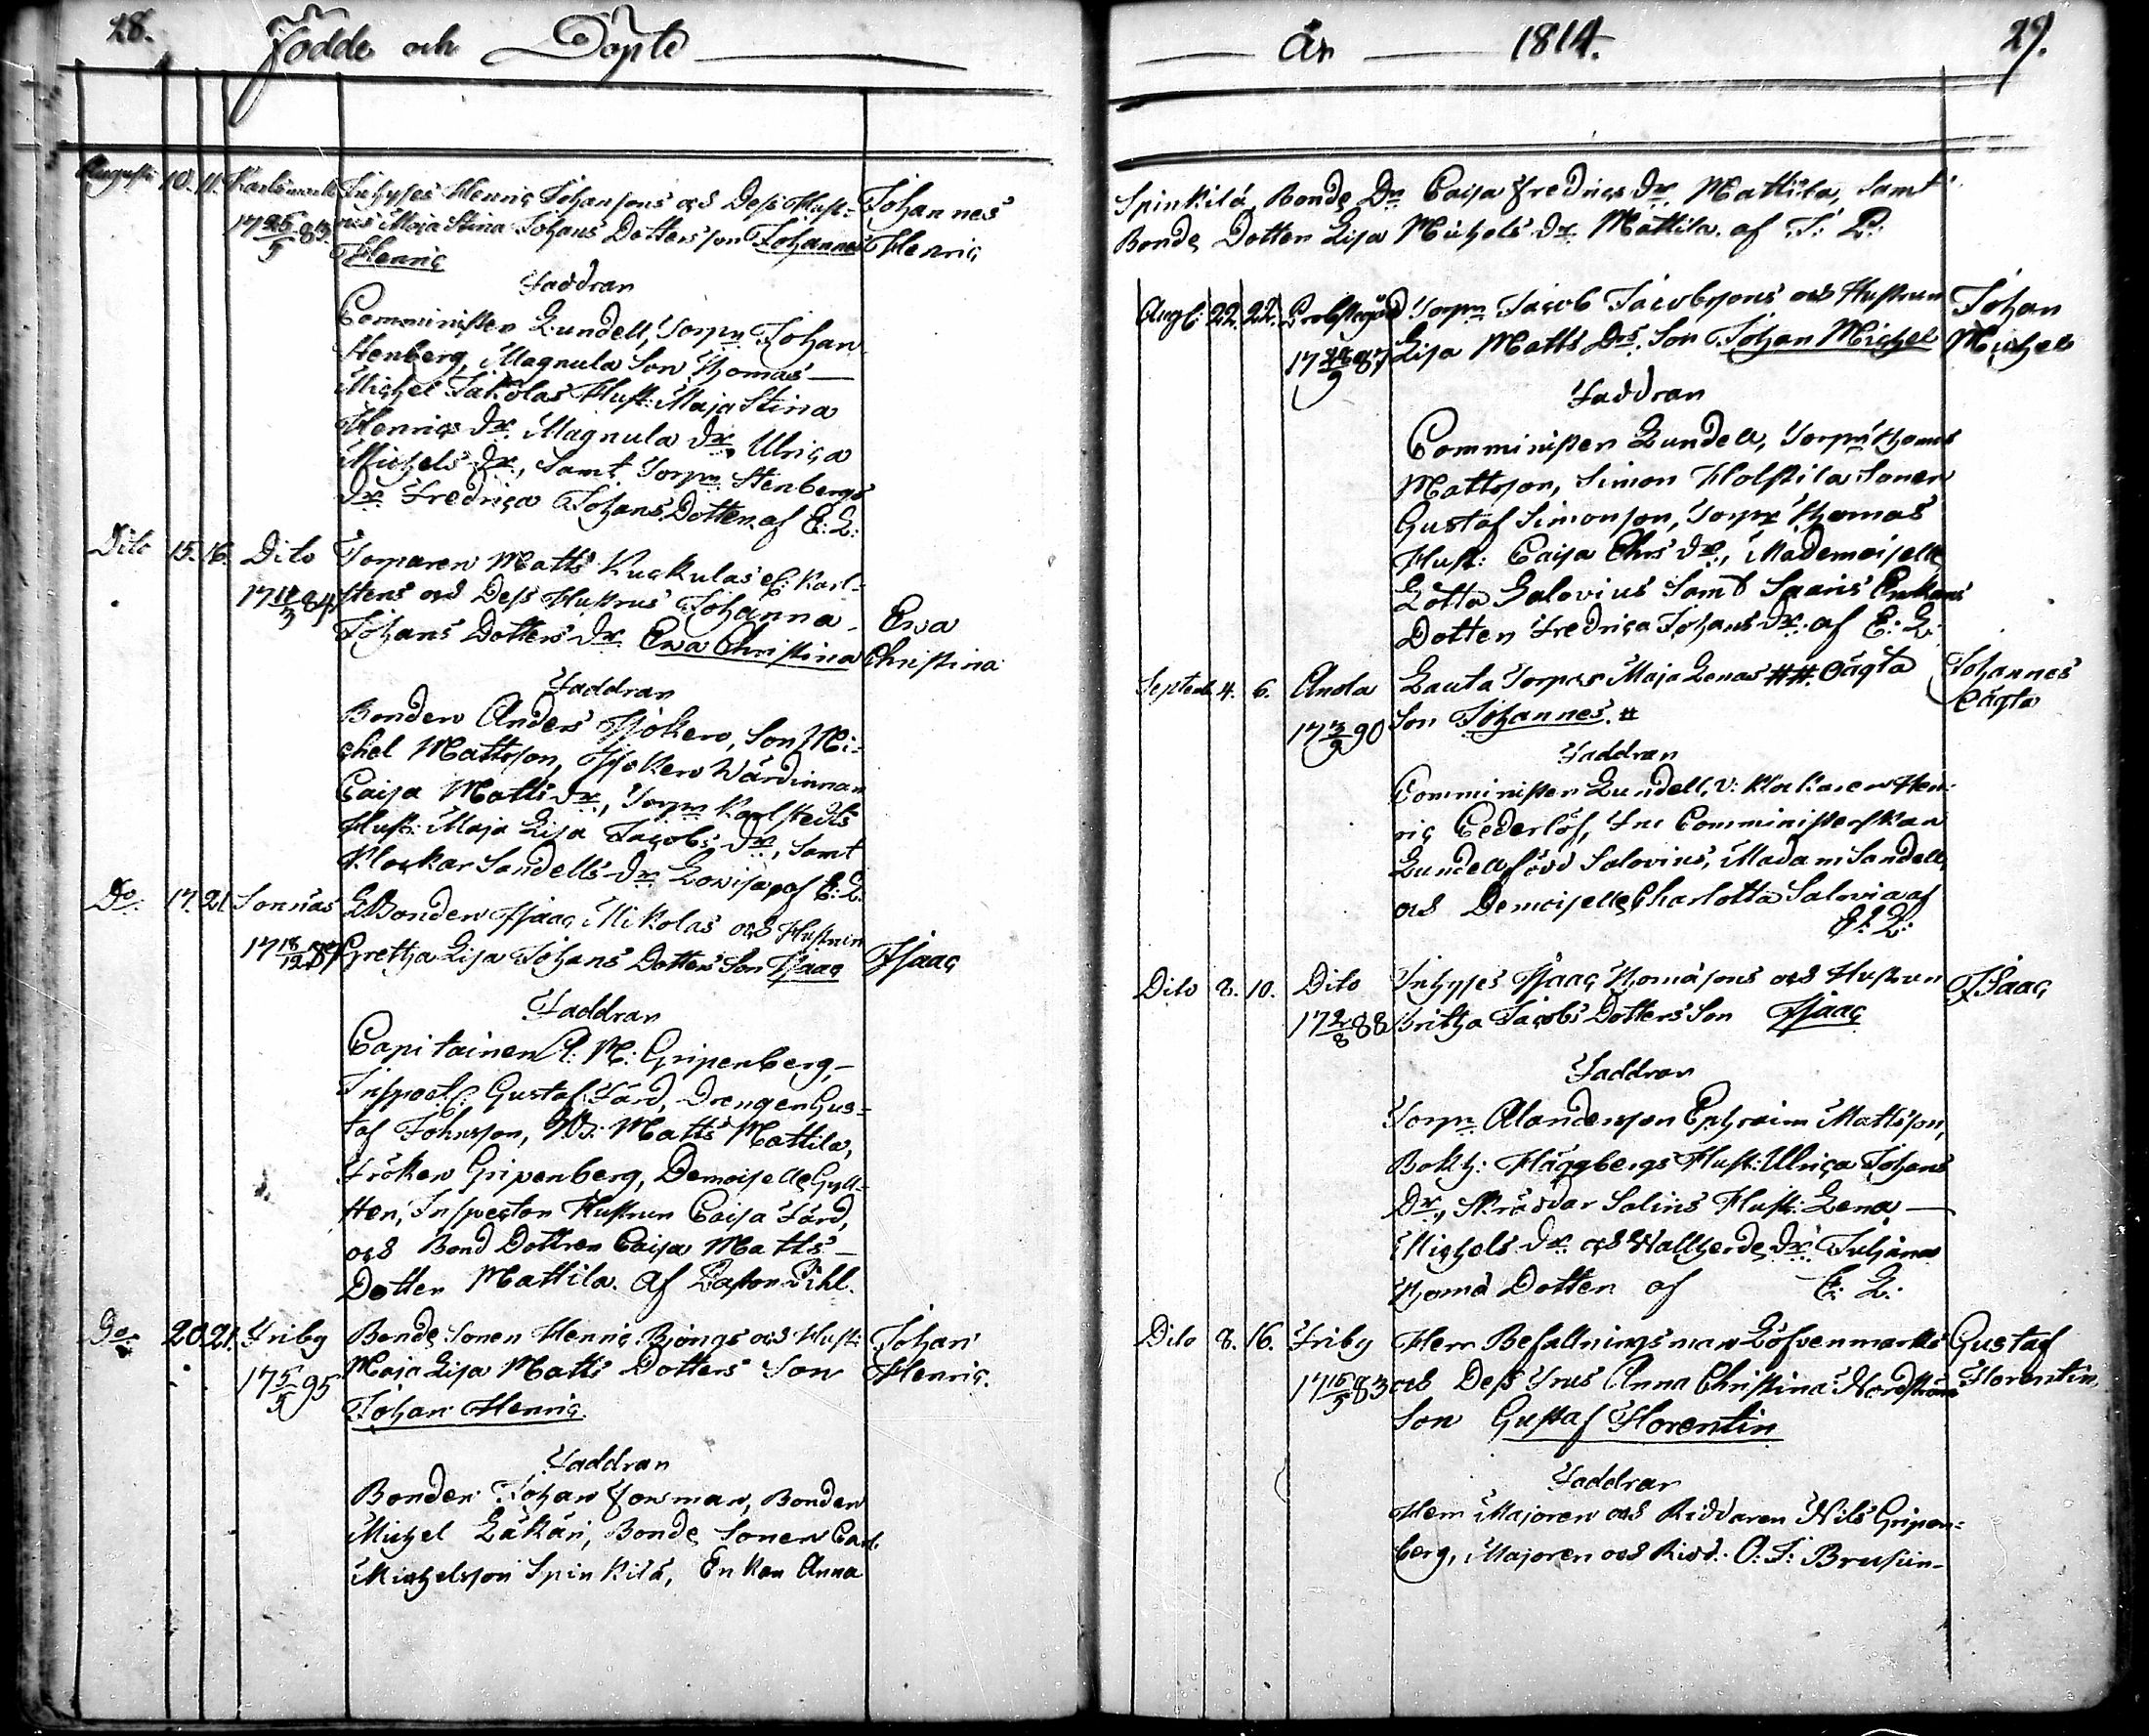 28. Födde och Döpte
Augusti 10. 11. Karlsmark Inhyses Henric Johansons och Dess Hust= Johannes
17 25/5 83. rus Maja Stina Johans Dotters son Johannes Henric
Henric
Faddrar
Comministern Lundell, Torpn Johan
Stenberg, Magnula Son Thomas
Michel Jakolas Hust: Maja Stina
Henrics dr. Magnula dr. Ulrica
Michels dr., Samt Torpn Stenbergs
dr Fredrica Johans Dotter af E: L:
Dito 15. 16. Dito Torparen Matts Kuckulas el: Karl=
17 11/3 84 stens och Dess Hustrus Johanna Ewa
Johans Dotters dr. Ewa Christina Christina
Faddrar
Bonden Anders Isokero, Son Mi=
chel Mattsson, Isokero Wärdinnan
Caisa Matts dr., Torpn Karlstedts
Hust: Maja Lisa Jacobs dr., samt
Klockar Sandells dr. Lovisa, af E: L.
Do. 17. 21. Sonnäs Bonden Isaac Mikolas och Hustrun
17 18/12 Gretha Lisa Johans Dotters Son Isaac Isaac
Faddrar
Capitainen A: M: Gripenberg,
Inspect: Gustaf Färd, Drengen Gus=
taf Johnsson, Matts Mattila,
Fröken Gripenberg, Demoiselle Gyll=
Hen, Inspector Hustrun Caisa Färd,
och Bond Dottren Caisa Matts
Dotter Mattila. af Pastor Pihl.
Do. 20. 21. Friby Bonde Sonen Henric Björgs och Hust: Johan
17 5/5 95 Maja Lisa Matts Dotters Son Henric.
Johan Henric.
Faddrar
Bonden Johan Forsman, Bonden
Michel Läkäri, Bonde Sonen Carl
Michelsson Spinkilä, Enkan Anna
År 1814. 29.
Spinkilä, Bonde Dr Caisa Fredrics dr. Mattila, Samt
Bonde Dotter Lisa Michels dr. Mattila. af J: P:
Aug: 22. 22. Prostegård Torpn Jacob Jacobsons och Hustrun Johan
17 87 Lisa Matts Drs. Son Johan Michel Michel
Faddrar
Comministern Lundell, Torpn Thomas
Mattsson, Simon Holstila Sonen
Gustaf Simonson, Torpr Thomas
Hust: Caisa Chrs dr., Mademoiselle
Lotta Salovius Samt Saaris Enkans
Dotter Fredrica Johans dr. af E: L:
Septemb. 4. 6. Anola Lauta Torpar Maja Lenas ##. Oägta Johannes
17 3/9 90 Son Johannes. # Oägta
Faddrar
Comministern Lundell, v: Klockaren Hen=
ric Cederlöf, Fru Comministerskan
Lundell född Salovius, Madam Sandell
och Demoiselle Charlotta Salovia af
E: L:
Dito 8. 10. Dito Inhyses Isaac Thomasons och Hustrun Isaac
17 2/8 88 Britha Jacobs Dotters Son Isaac
Faddrar
Torpn Alandersson Ephraim Mattsson,
Bokh: Häggbergs Hust: Ulrica Johans
Dr., Skräddar Salins Hust: Lena
Michels dr. och Wallherde dr. Juliana
Thomas Dotter af E: L:
Dito 8. 16. Friby Herr Befallningsman Löfvenmarks Gustaf
17 15/5 83 och Dess Frus Anna Christina Nordström Florentin
Son Gustaf Florentin
Faddrar
Herr Majoren och Riddaren Nils Gripen=
berg, Majoren och Ridd: O: J: Brusiin